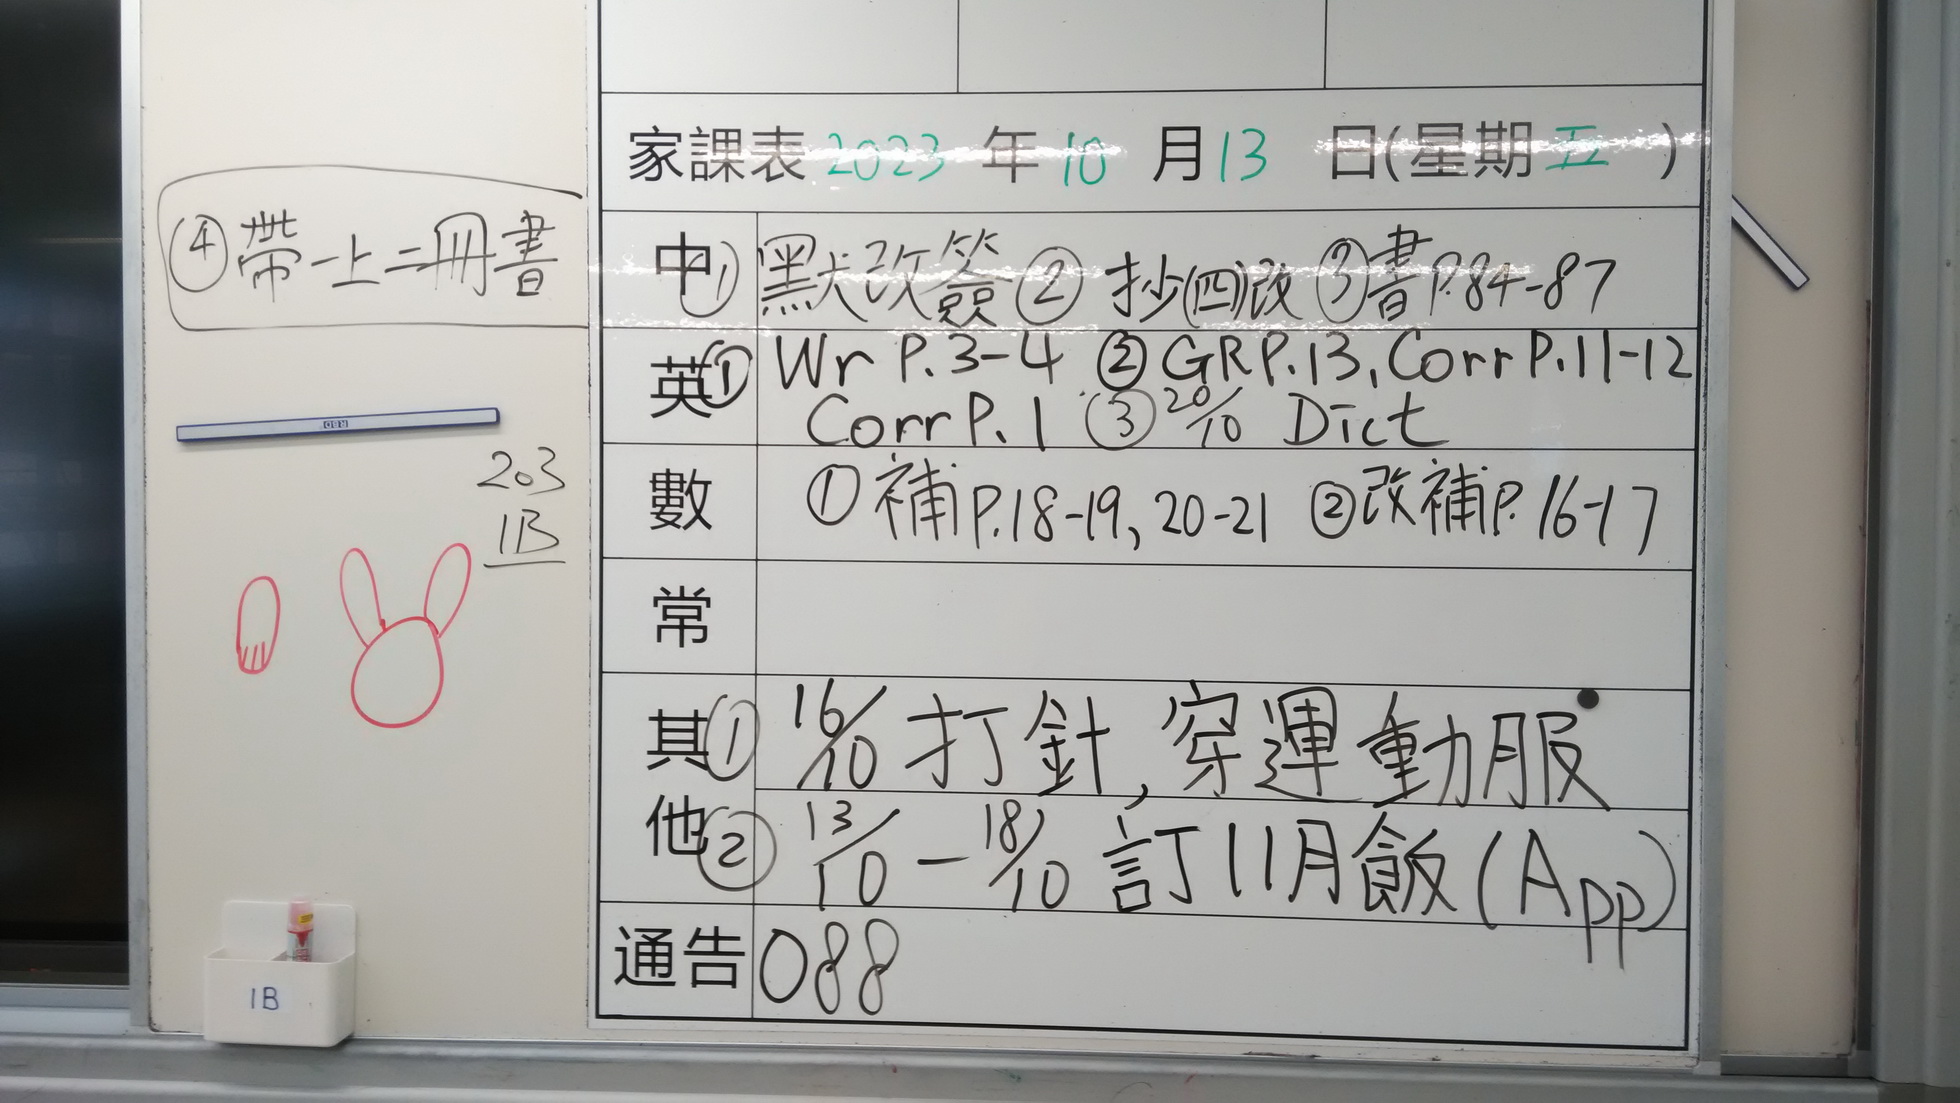 家課表 2023 年 10 月 13 日(星期 五 )
④帶一上二冊書
中 ① 默改簽 ② 抄(四)改 ③書P.84-87
英 ① Wr P.3-4 ② GR P.13, Corr P.11-12
Corr P.1 ③ 20/10 Dict
數 ① 補P.18-19, 20-21 ②改補P.16-17
203
1B
常
其他 ① 16/10 打針, 穿運動服
② 13/10 - 18/10 訂11月飯(App)
通告 088
1B